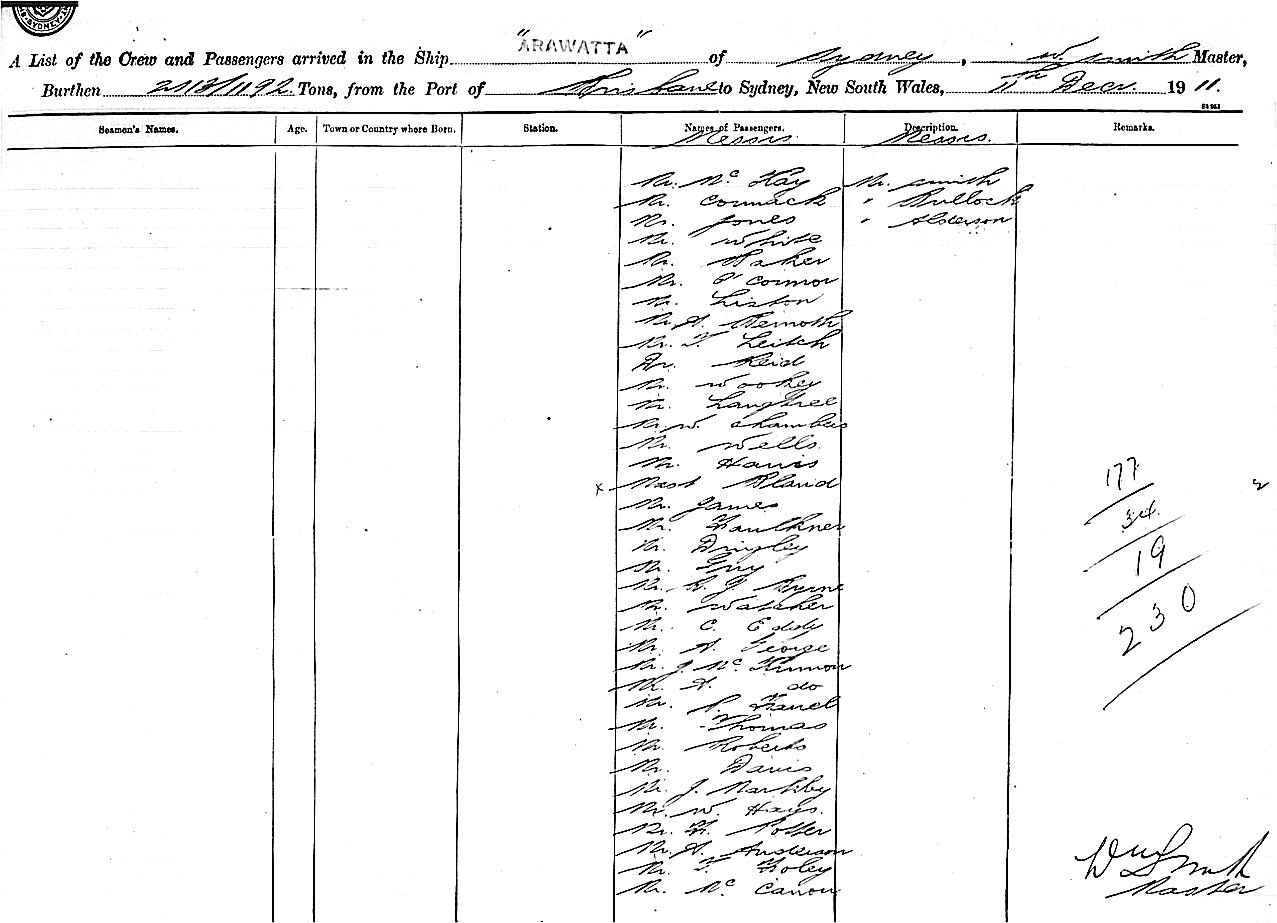 SYDNEY
A List of the Crew and Passengers arrived in the Ship "ARAWATTA" of Sydney, W. Smith Master,
Burthen 2118/1192 Tons, from the Port of Brisbane to Sydney, New South Wales, 11th Decr. 1911.
Seamen's Names. Age. Town or Country where Born. Station. Names of Passengers. Description. Remarks.
Messrs. Messrs.
Mr. McKay Mr. Smith
Mr. Cormack " Bullock
Mr. Jones " Alderson
Mr. White
Mr. Baker
Mr. O'Connor
Mr. Liston
Mr. A.
Mr. F. Leitch
Dr. Reid
Mr. Wookey
Mr. Langtree
Mr. W. Chambers
Mr. Wells.
Mr. Harris
x Mast Bland
Mr. James
Mr. Faulkner
Mr. Dingley
Mr. Guy
Mr. Byrne
Mr. Watcher
Mr. C. Eddy
Mr. A. George
Mr. J. Mc
Mr. A. do
Mr. P.
Mr. Thomas
Mr. Roberts
Mr. Davis
Mr. J. Markby
Mr. W. Hays.
Mr. F. Potter
Mr. A. Anderson
Mr. F. Foley
Mr. McCanon
177
34
19
230
Wm Smith
Master